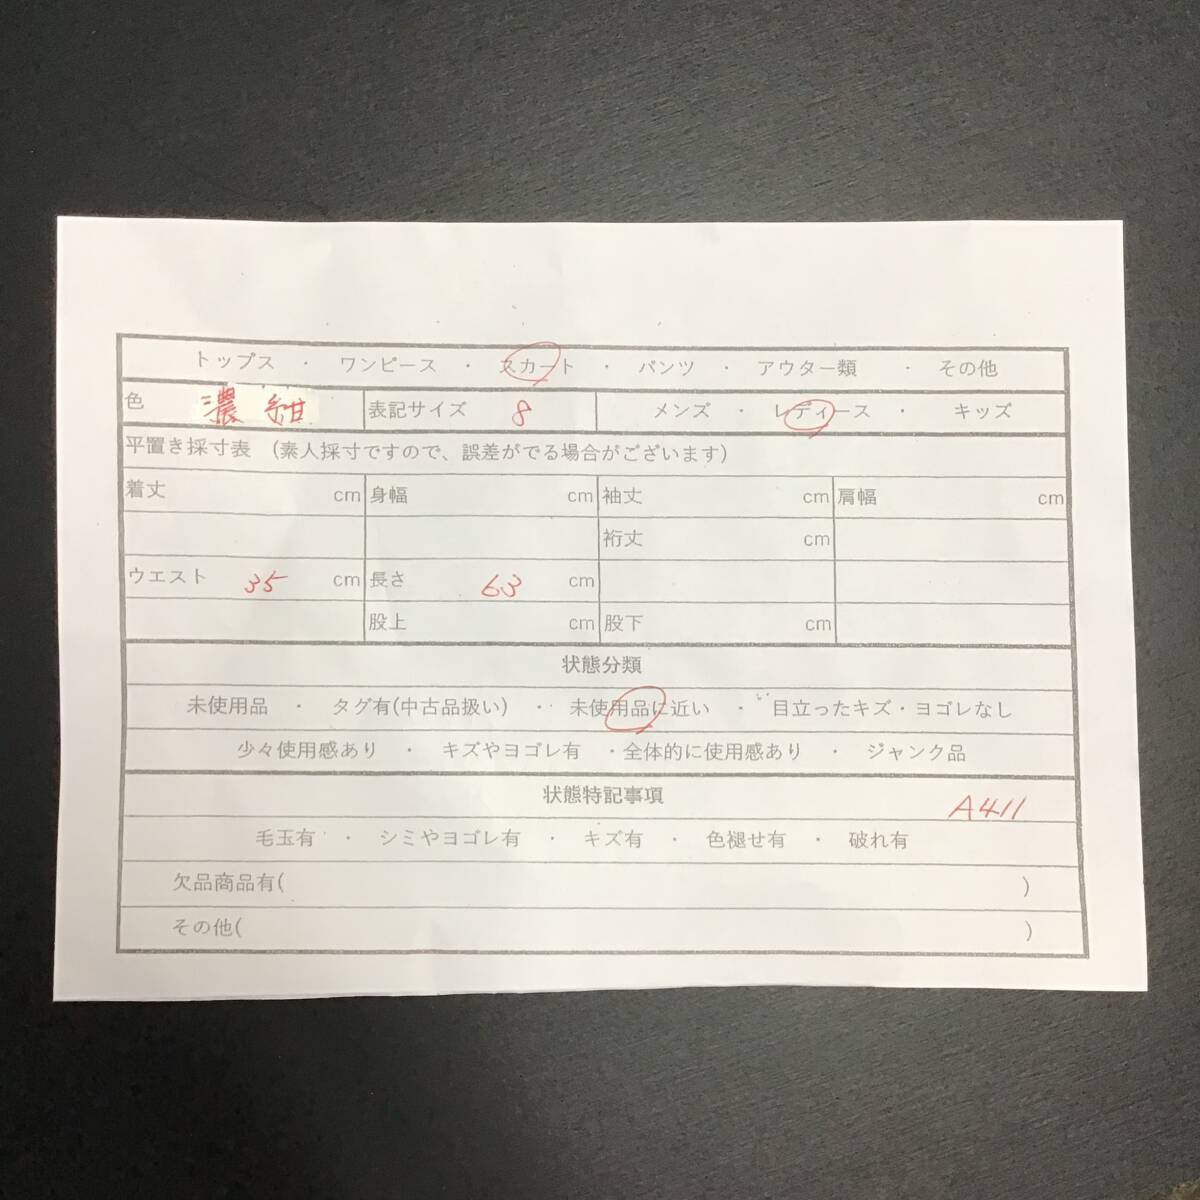 トップス ・ ワンピース ・ スカート ・ パンツ ・ アウター類 ・ その他
色 濃紺 表記サイズ 8 メンズ ・ レディース ・ キッズ
平置き採寸表 (素人採寸ですので、誤差がでる場合がございます)
着丈 cm 身幅 cm 袖丈 cm 肩幅 cm
裄丈 cm
ウエスト 35 cm 長さ 63 cm
股上 cm 股下 cm
状態分類
未使用品 ・ タグ有(中古品扱い) ・ 未使用品に近い ・ 目立ったキズ・ヨゴレなし
少々使用感あり ・ キズやヨゴレ有 ・全体的に使用感あり ・ ジャンク品
状態特記事項
A411
毛玉有 ・ シミやヨゴレ有 ・ キズ有 ・ 色褪せ有 ・ 破れ有
欠品商品有( )
その他( )